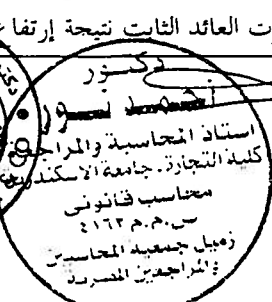 ت العائد الثابت نتيجة إرتفا
دكتور
أحمد
استاذ المحاسبة والمراجعة
كلية التجارة. جامعة الاسكندرية
محاسب قانونى
س.م.م ٤١٦٣
زميل جمعية المحاسبين
والمراجعين المصرية